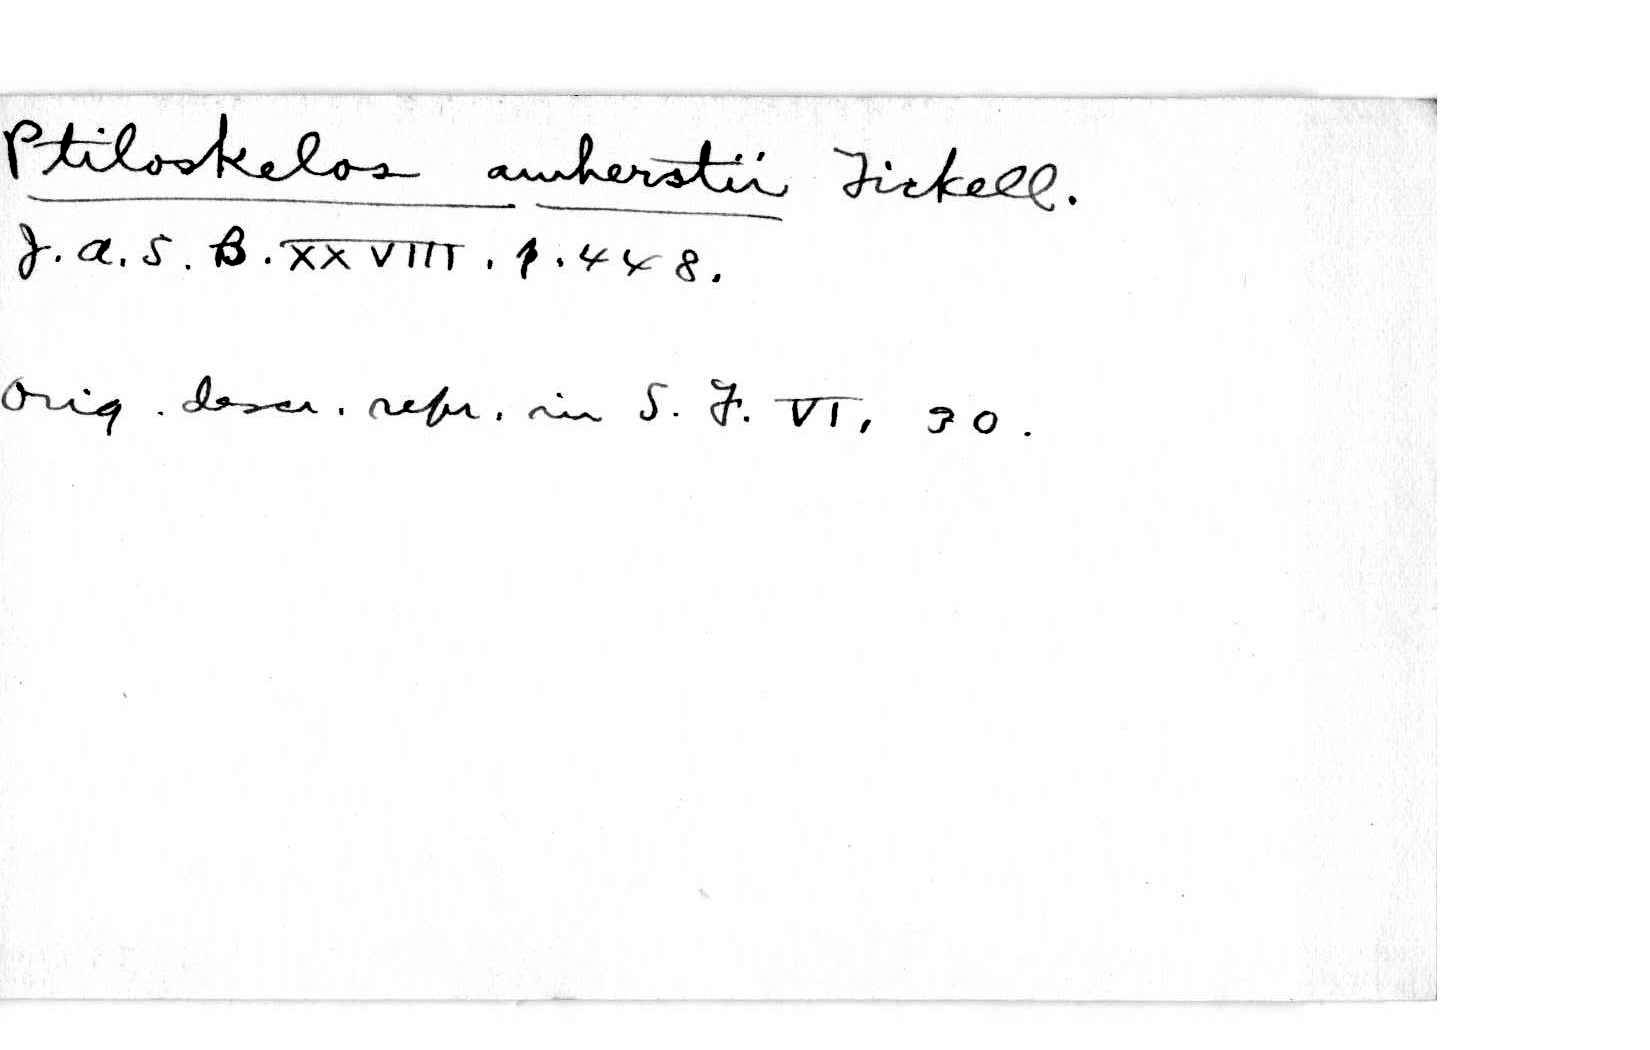 Ptiloskelos amherstii Tickell.
J. A. S. B. XXVIII. p. 448.
Orig. descr. repr. in S. F. VI, 30.